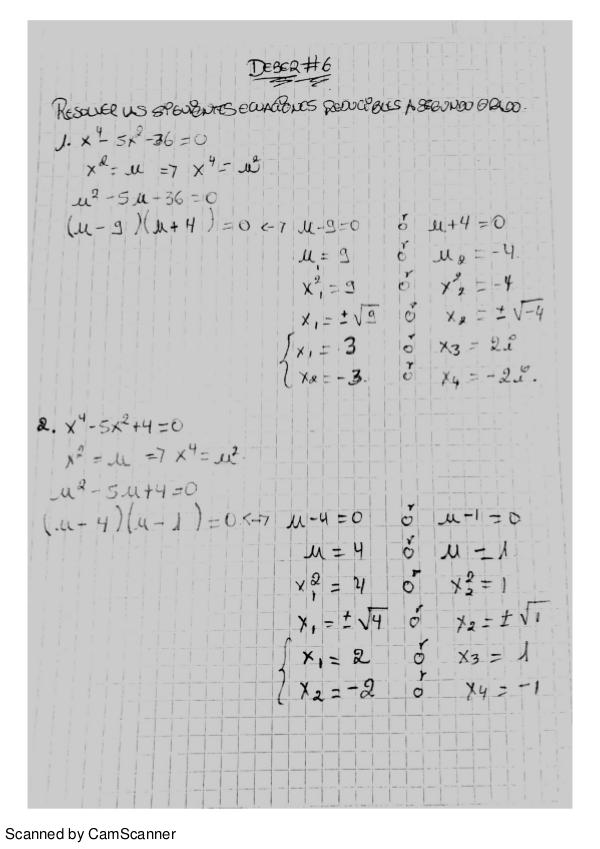 DEBER #6
RESOLVER LAS SIGUIENTES ECUACIONES REDUCIBLES A SEGUNDO GRADO.
1. x⁴ - 5x² - 36 = 0
x² = u => x⁴ = u²
u² - 5u - 36 = 0
(u - 9)(u + 4) = 0 <-> u - 9 = 0 or u + 4 = 0
u₁ = 9 or u₂ = -4
x₁² = 9 or x₂² = -4
x₁ = ±√9 or x₂ = ±√-4
x₁ = 3 or x₃ = 2i
x₂ = -3. or x₄ = -2i.
2. x⁴ - 5x² + 4 = 0
x² = u => x⁴ = u².
u² - 5u + 4 = 0
(u - 4)(u - 1) = 0 <-> u - 4 = 0 or u - 1 = 0
u = 4 or u = 1
x₁² = 4 or x₂² = 1
x₁ = ±√4 or x₂ = ±√1
x₁ = 2 or x₃ = 1
x₂ = -2 or x₄ = -1
Scanned by CamScanner